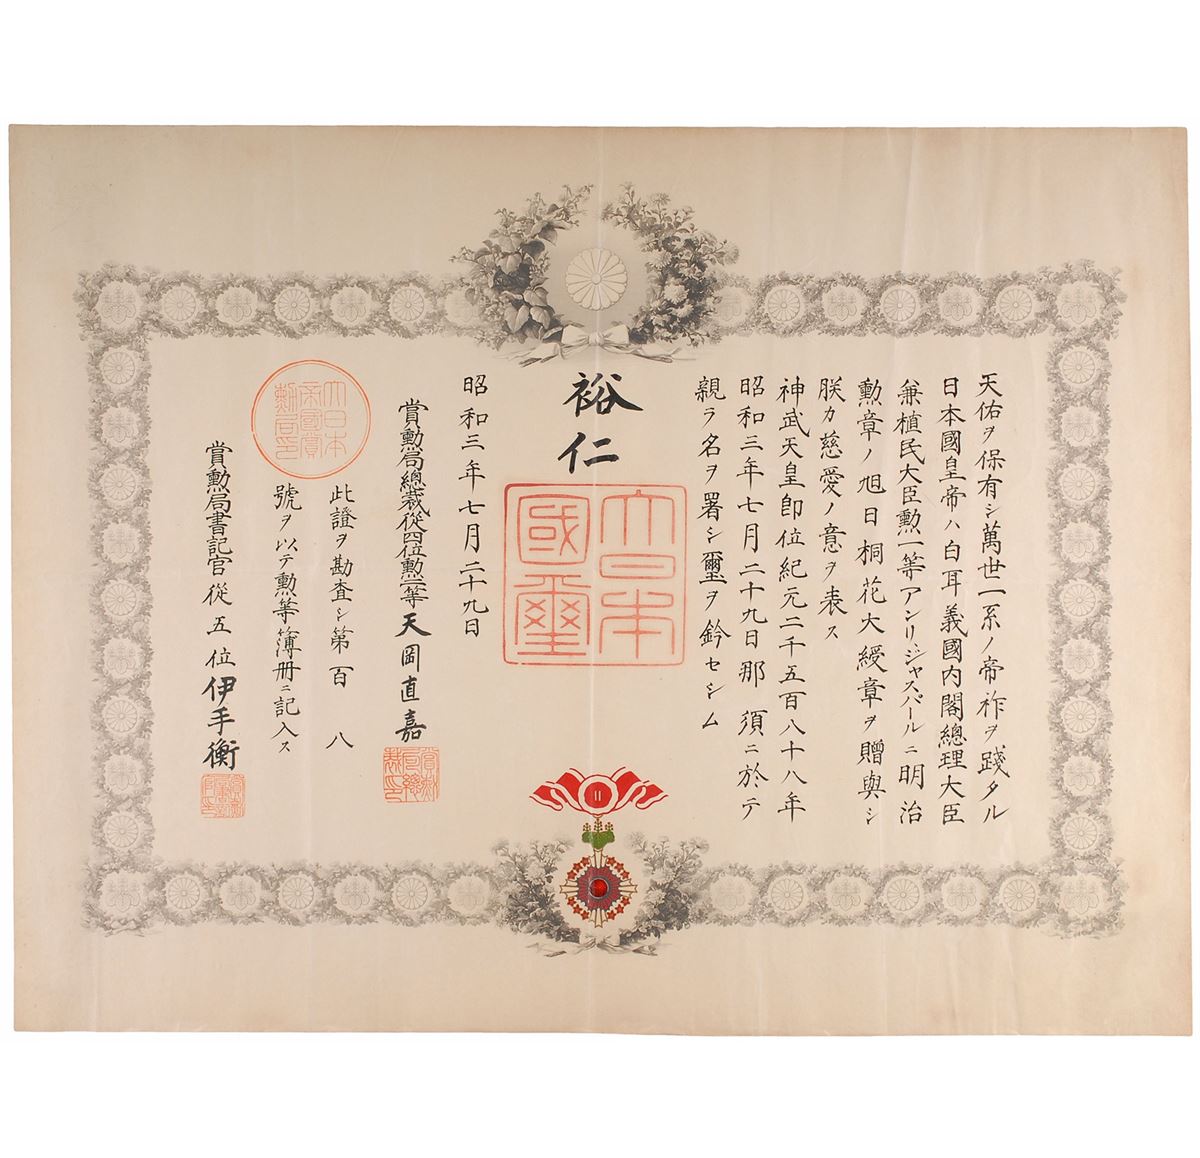 天佑ヲ保有シ萬世一系ノ帝祚ヲ踐タル
日本國皇帝ハ白耳義國内閣總理大臣
兼植民大臣勲一等アンリ、ジャスパールニ明治
勲章ノ旭日桐花大綬章ヲ贈與シ
朕カ慈愛ノ意ヲ表ス
神武天皇即位紀元二千五百八十八年
昭和三年七月二十九日那須ニ於テ
親ラ名ヲ署シ璽ヲ鈐セシム
裕仁
大日本
國璽
昭和三年七月二十九日
賞勲局總裁從四位勲二等天岡直嘉
此證ヲ勘査シ第百八
號ヲ以テ勲等簿册ニ記入ス
大日本
帝國賞
勲局印
賞勲局書記官從五位伊手衡